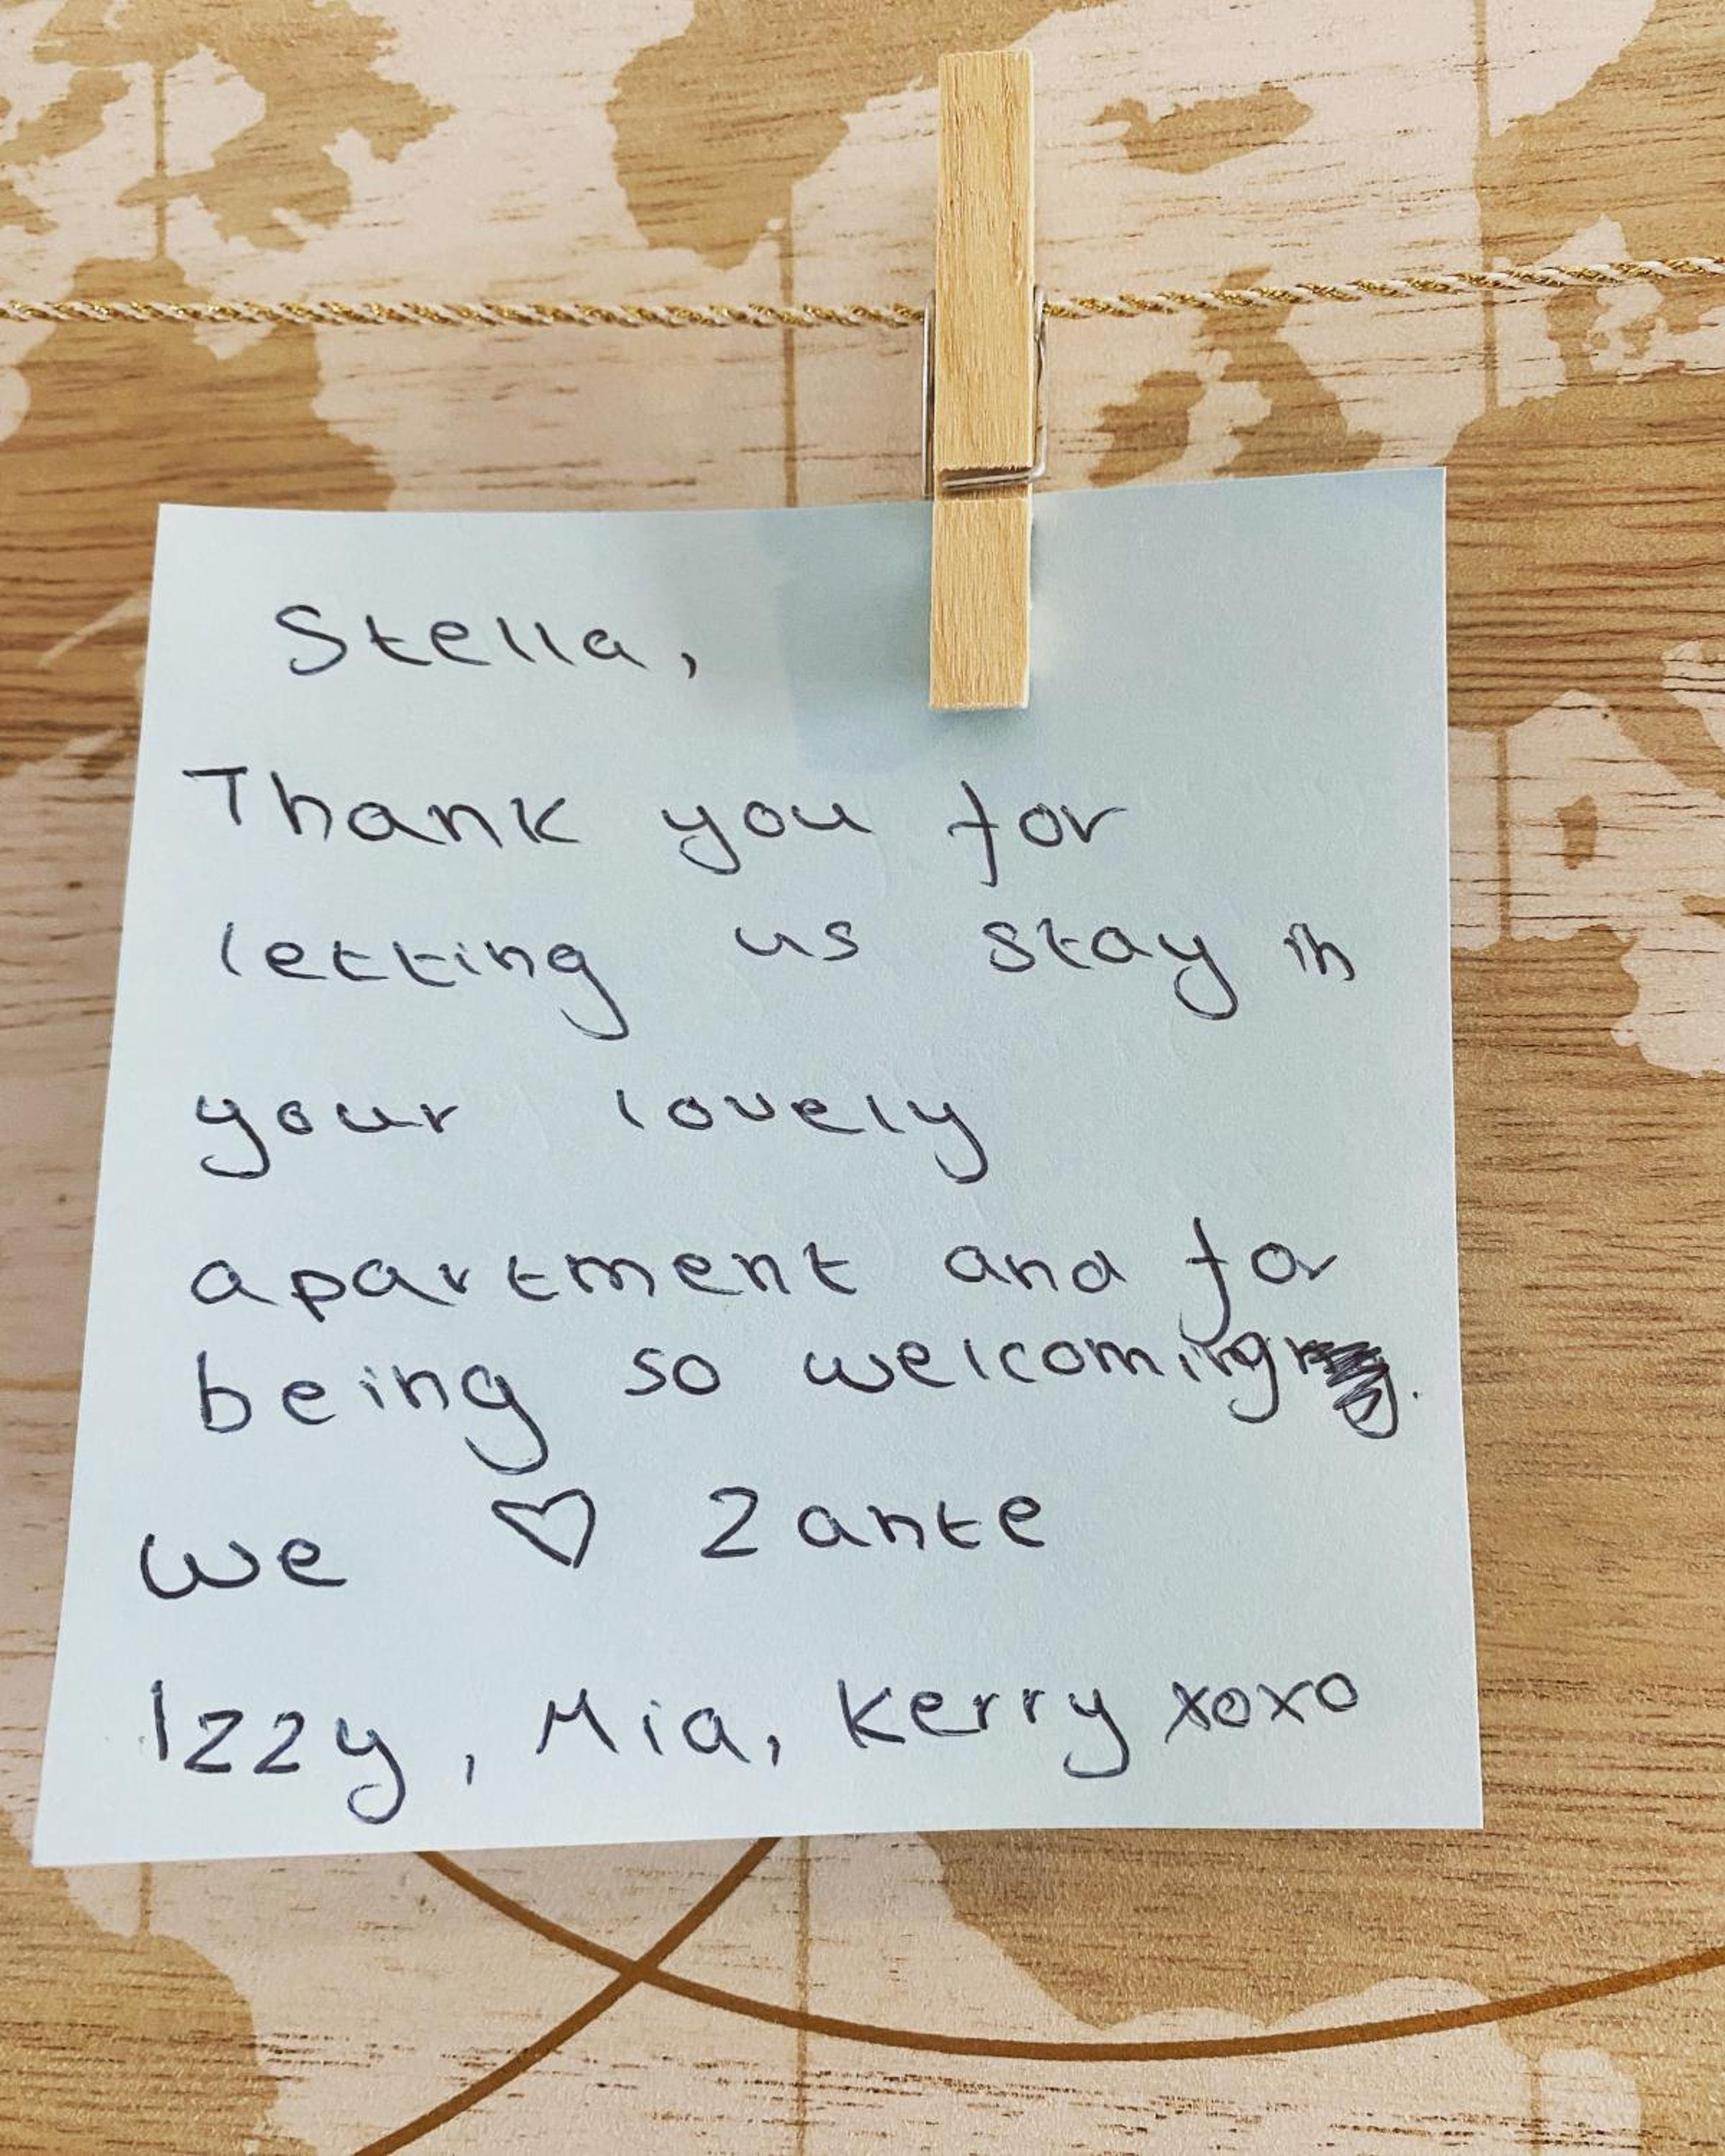 Stella,
Thank you for
letting us stay in
your lovely
apartment and for
being so welcoming.
We ♡ Zante
Izzy, Mia, Kerry xoxo